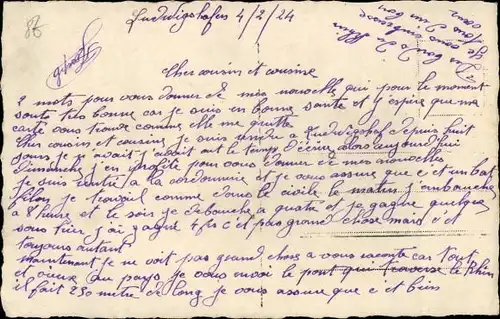 Ludwigshafen 4/2/24
Cher cousin et cousine
2 mots pour vous donner de mes nouvelle qui pour le moment
sont très bonne car je suis en bonne santé et j'espère que ma
carte vous trouve comme elle me quitte
Cher cousin et cousine je suis rendu a Ludwigshaf depuis huit
jours je n'avait pas le temps d'écrire alors aujourd'hui
Dimanche j'en profite pour vous donner de mes nouvelles
je suis rentré a la cordonnerie et je vous assure que c'et un bat
filon je travail comme dans le civile le matin j'embauche
a 8 heure et le soir je débauche a quatre et je gagne quelque
sous hier j'ai gagné 4 frs c'et pas grand chose mais c'et
toujours autant
maintenant je ne voit pas grand chose a vous raconté car
et vieux au pays je vous envoi le pont qui traverse le Rhin
il fait 250 mètre de long je vous assure que c'et bien